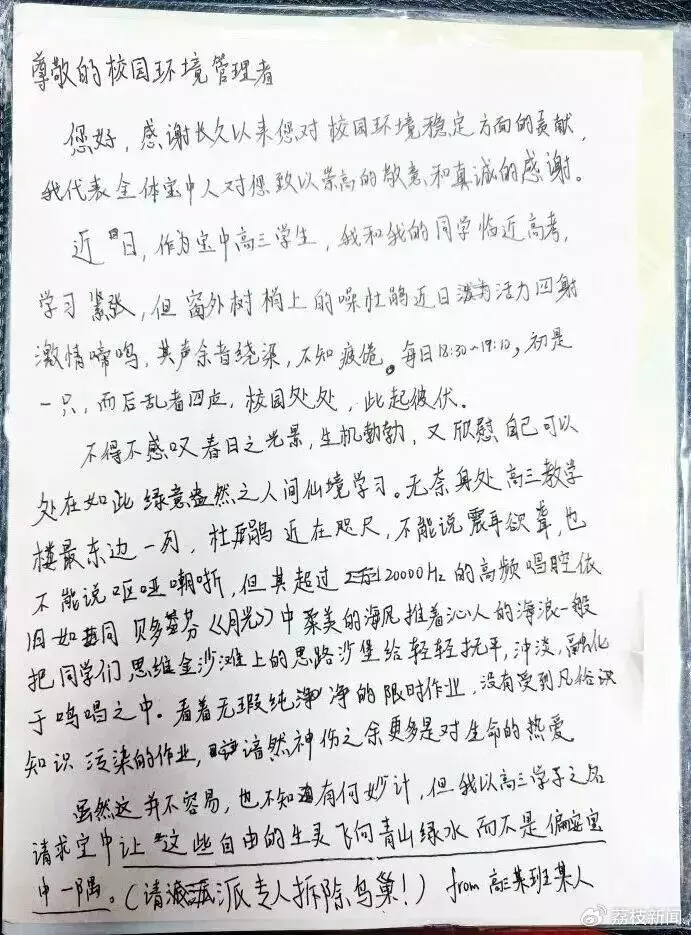 尊敬的校园环境管理者
您好，感谢长久以来您对校园环境稳定方面的贡献，
我代表全体宝中人对您致以崇高的敬意和真诚的感谢。
近日，作为宝中高三学生，我和我的同学临近高考，
学习紧张，但窗外树梢上的噪杜鹃近日活力四射
激情啼鸣，其声余音绕梁，不知疲倦。每日18:30~19:10，初是
一只，而后乱者四点，校园处处，此起彼伏。
不得不感叹春日之光景，生机勃勃，又欣慰自己可以
处在如此绿意盎然之人间仙境学习。无奈身处高三教学
楼最东边一列，杜鹃近在咫尺，不能说震耳欲聋，也
不能说呕哑嘲哳，但其超过20000Hz的高频唱腔依
旧如同贝多芬《月光》中柔美的海风推着沁人的海浪一般
把同学们思维金沙滩上的思路沙堡给轻轻抚平，冲淡，融化
于鸣唱之中。看着无瑕纯净的限时作业，没有受到凡俗
知识污染的作业，黯然神伤之余更多是对生命的热爱
虽然这并不容易，也不知有何妙计，但我以高三学子之名
请求宝中让这些自由的生灵飞向青山绿水而不是偏安宝
中一隅。（请派专人拆除鸟巢！） from高三某班某人
荔枝新闻